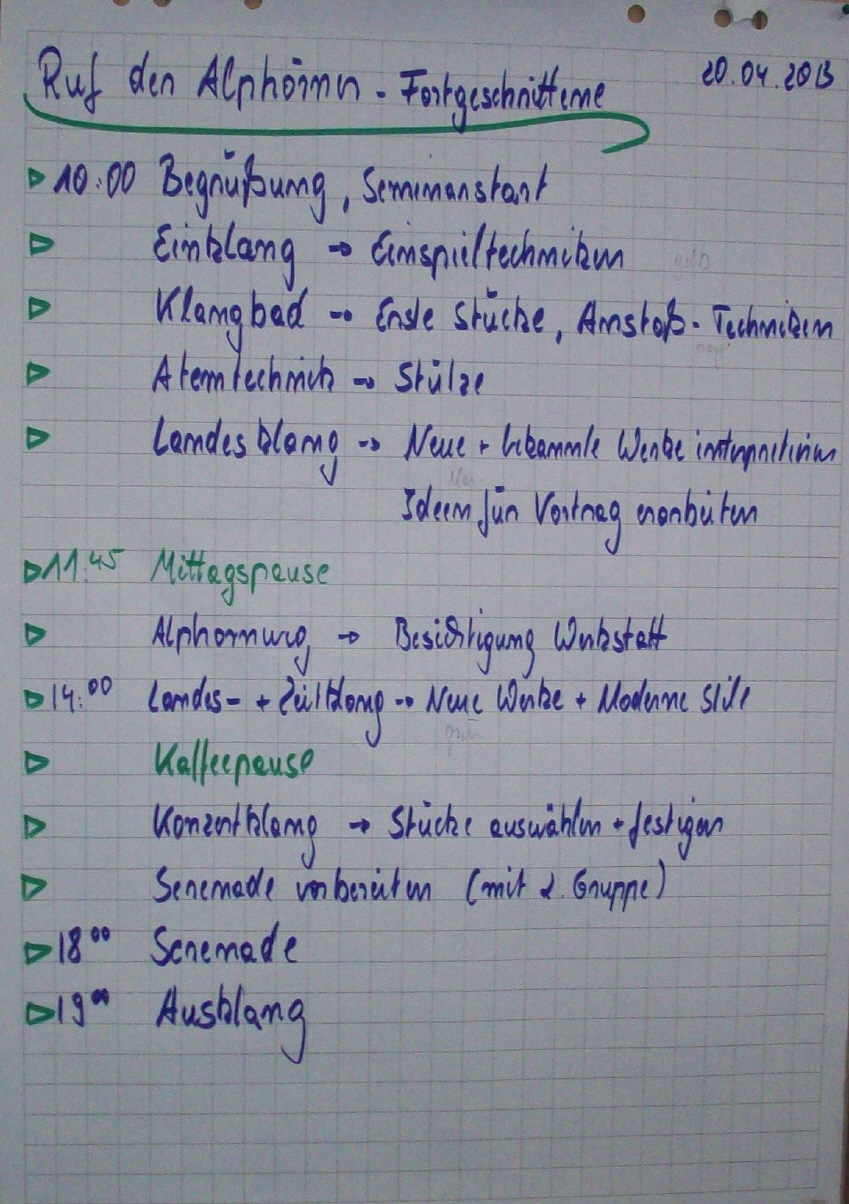 Ruf der Alphörner - Fortgeschrittene 20.04.2013
10:00 Begrüßung, Seminarstart
Einklang → Einspieltechniken
Klangbad → Erste Stücke, Anstoß-Techniken
Atemtechnik → Stütze
Landesklang → Neue + bekannte Werke interpretieren
Ideen für Vortrag erarbeiten
11:45 Mittagspause
Alphornweg → Besichtigung Werkstatt
14:00 Landes- + Zeitklang → Neue Werke + Moderne Stile
Kaffeepause
Konzertklang → Stücke auswählen + festigen
Serenade vorbereiten (mit 2. Gruppe)
18 00 Serenade
19 00 Ausklang